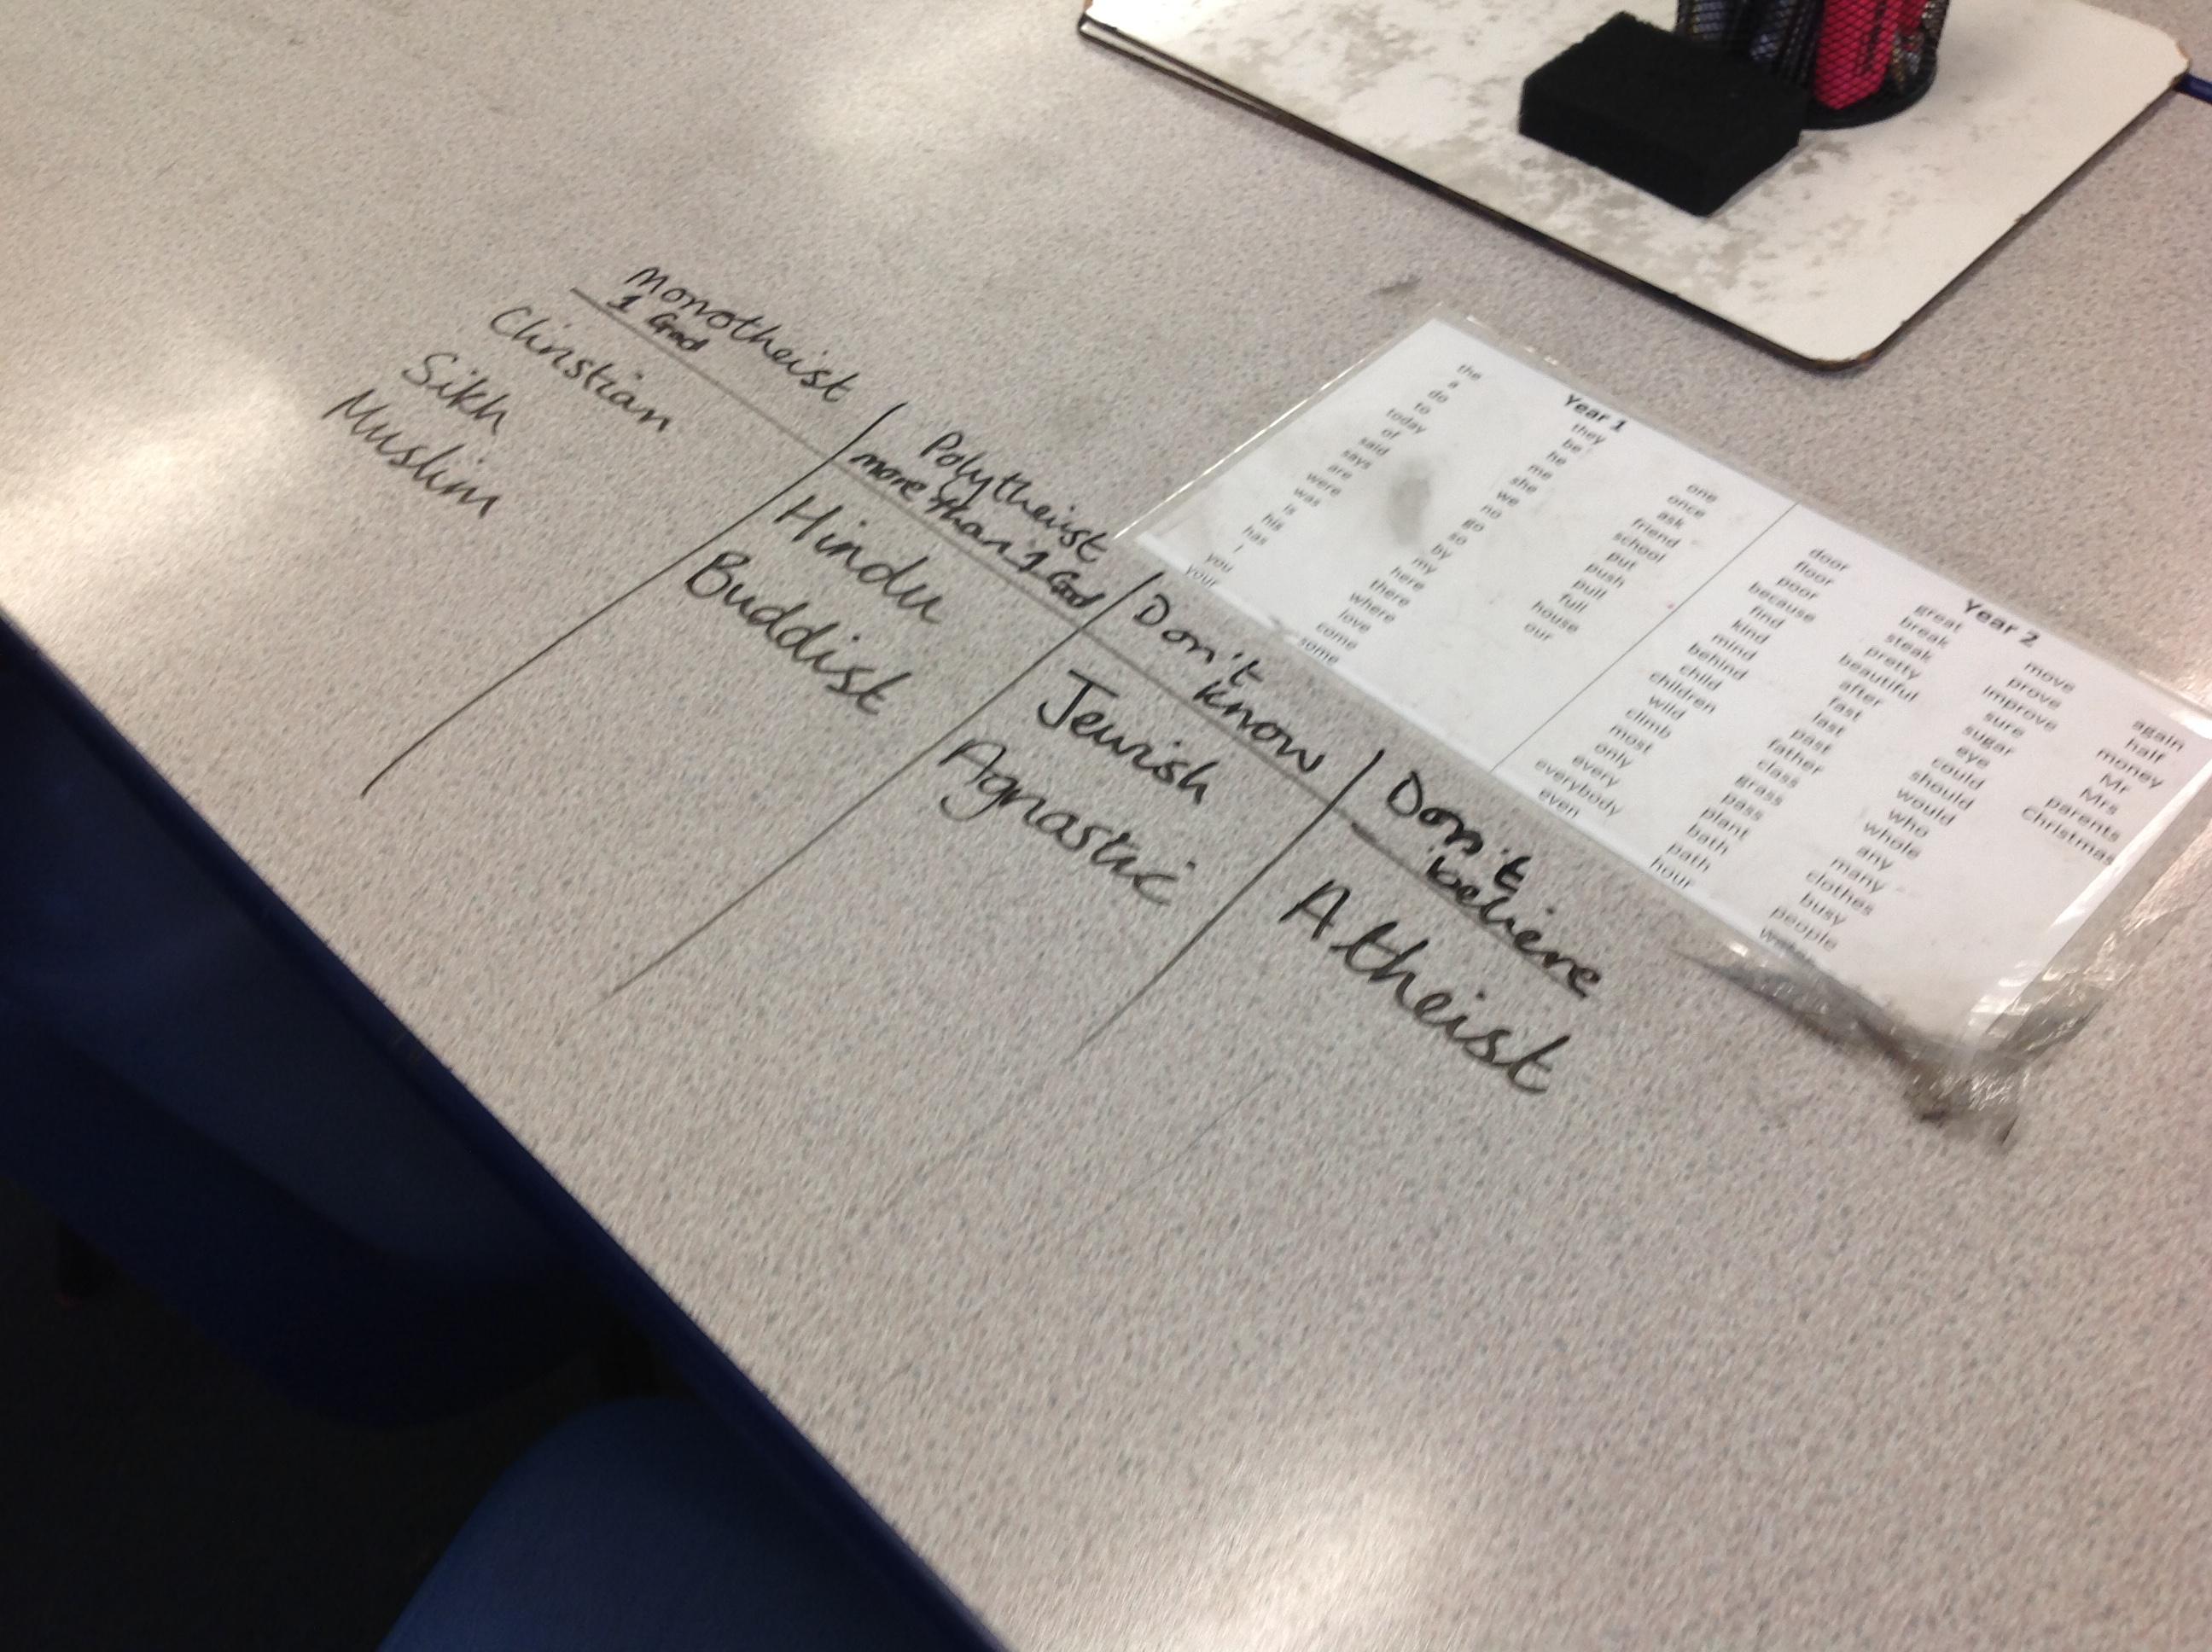 Monotheist
1 God
Christian
Sikh
Muslim
Polytheist
more than 1 God
Hindu
Buddist
Don't
know
Jewish
Agnastic
Don't
believe
Atheist
Year 1
the
a
do
to
today
of
said
says
are
were
was
is
his
has
I
you
your
they
be
he
me
she
we
no
go
so
by
my
here
there
where
love
come
some
one
once
ask
friend
school
put
push
pull
full
house
our
Year 2
door
floor
poor
because
find
kind
mind
behind
child
children
wild
climb
most
only
every
everybody
even
great
break
steak
pretty
beautiful
after
fast
last
past
father
class
grass
pass
plant
bath
path
hour
move
prove
improve
sure
sugar
eye
could
should
would
who
whole
any
many
clothes
busy
people
again
half
money
Mr
Mrs
parents
Christmas